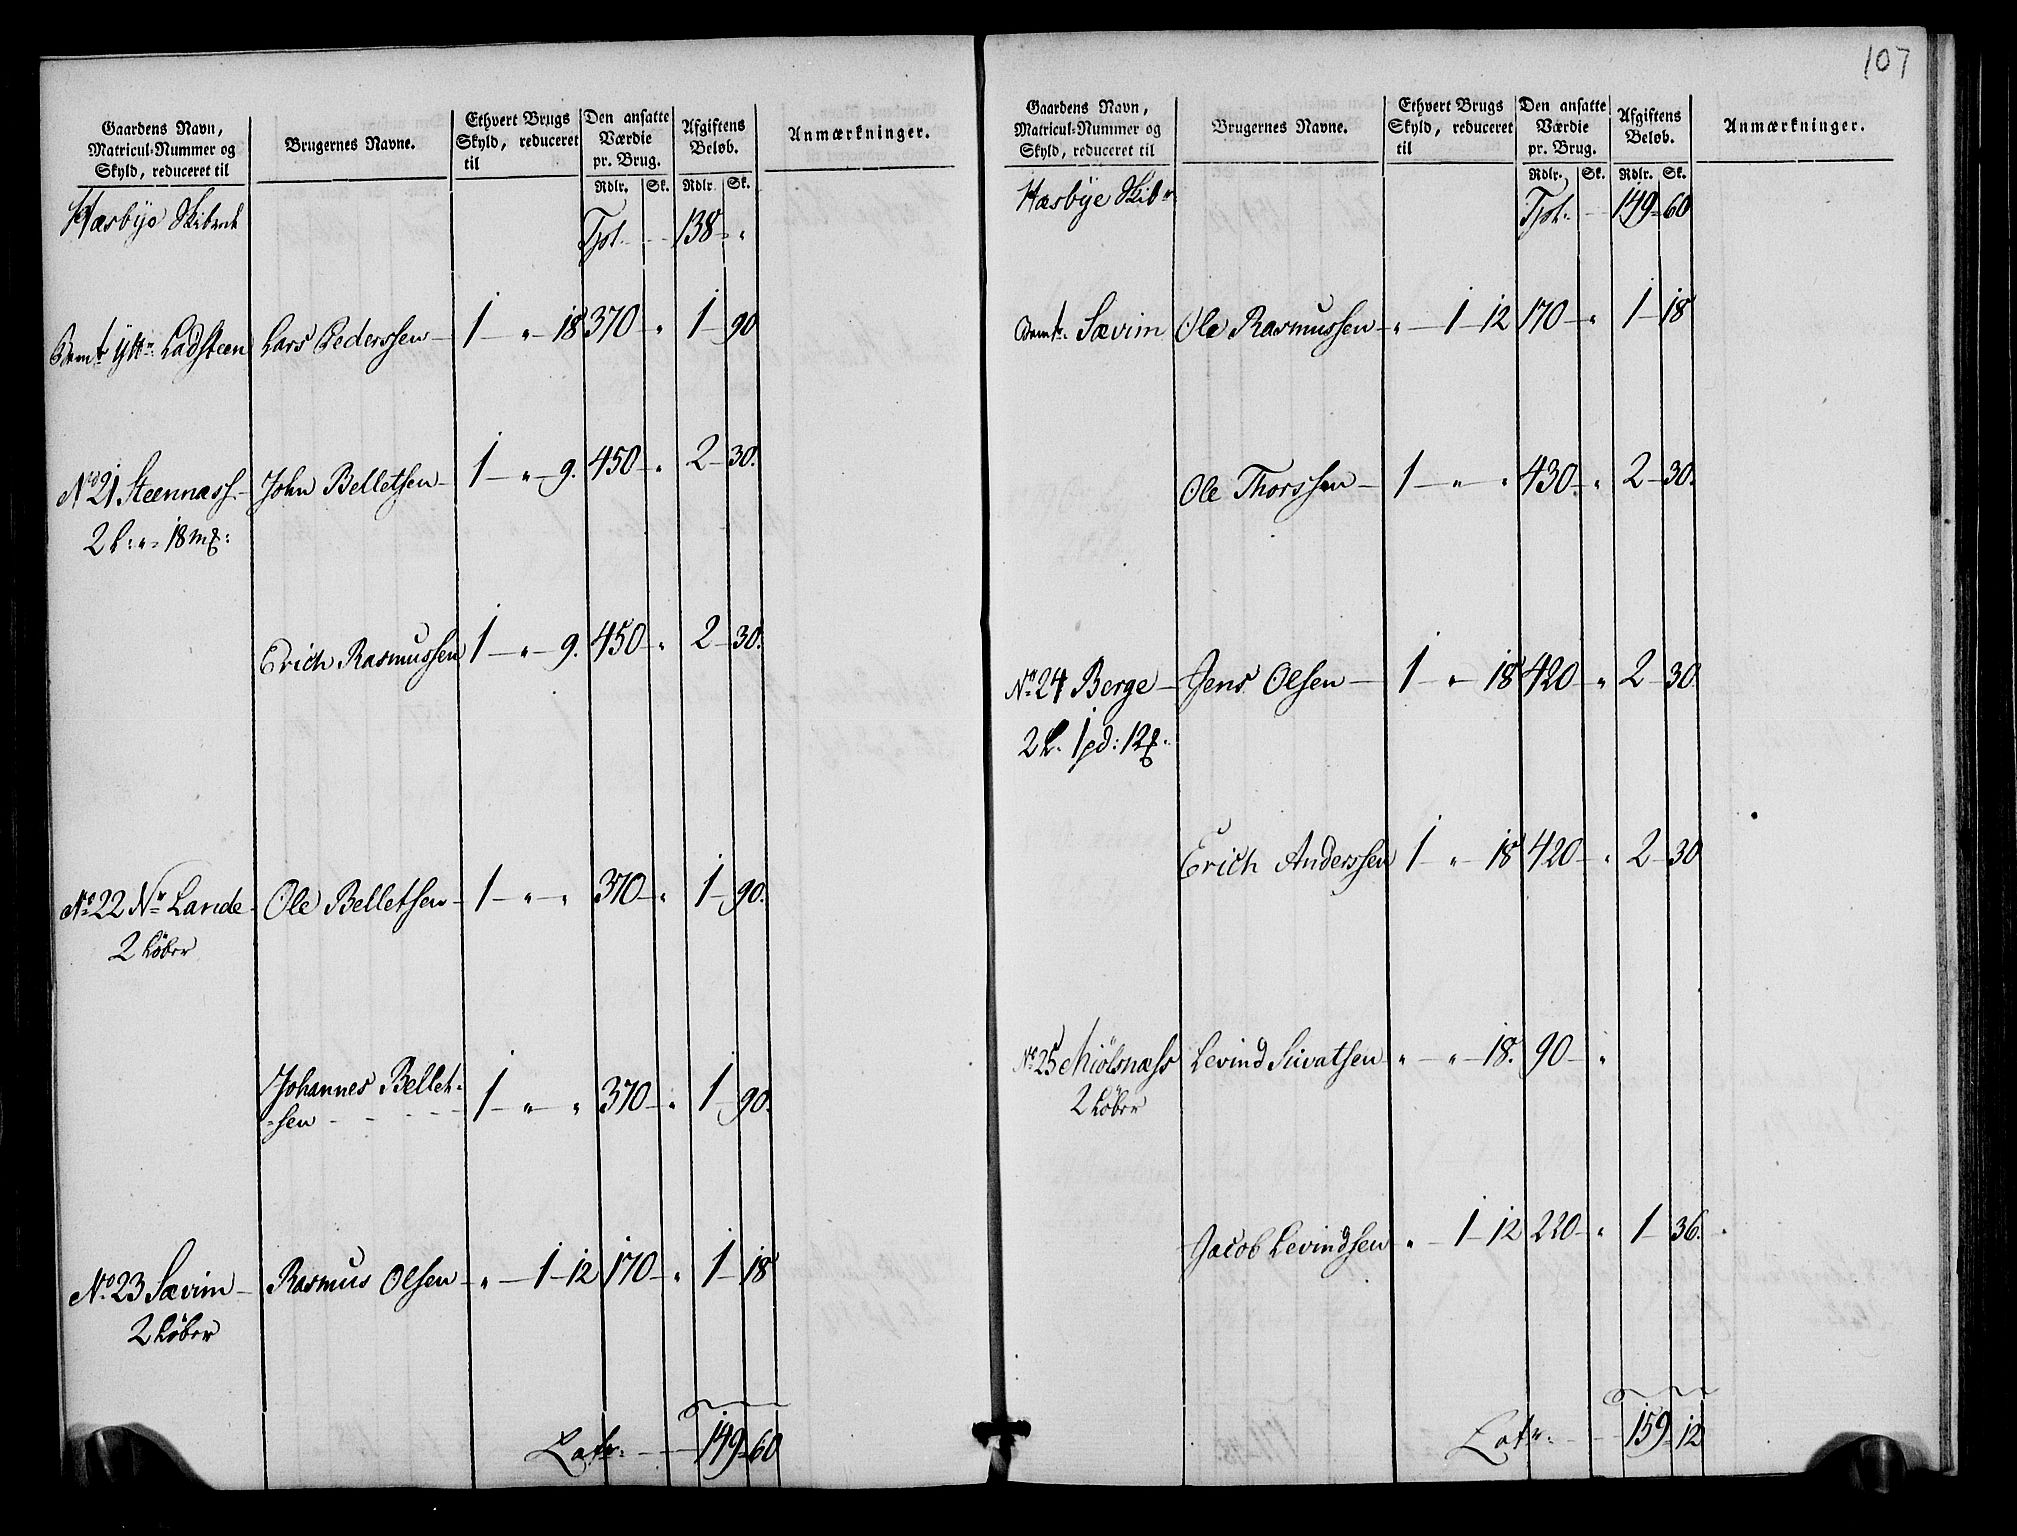 107
Gaardens Navn, Matricul-Nummer og Skyld, reduceret til | Brugernes Navne. | Ethvert Brugs Skyld, reduceret til | Den ansatte Værdie pr. Brug. | Afgiftens Beløb. | Anmærkninger.
Rdlr. Sk. Rdlr. Sk.
Hæsbye Skibrede Tpt. 138 "
Lars Pederssen 1 " 18 370 " 1 90
No 21 Steennæss John Belletsen 1 " 9. 450 " 2 30.
2 L: " 18 mk:
Erich Rasmussen 1 " 9. 450 " 2 30.
No 22 Nr Lande Ole Belletsen 1 " " 370 " 1 90.
2 Løber
Johannes Bellet-
sen 1 " " 370 " 1 90.
No 23 Sævim Rasmus Olsen " 1 12 170 " 1 18
2 Løber
Latr. 149 60
Gaardens Navn, Matricul-Nummer og Skyld, reduceret til | Brugernes Navne. | Ethvert Brugs Skyld, reduceret til | Den ansatte Værdie pr. Brug. | Afgiftens Beløb. | Anmærkninger.
Rdlr. Sk. Rdlr. Sk.
Hæsbye Skibr Tpt. 149 60
Sævim Ole Rasmussen " 1 12 170 " 1 18
Ole Thorssen 1 " " 430. " 2 30.
No 24 Berge Jens Olsen 1 " 18 420 " 2 30
2 L. 1 pd: 12
Erich Anderssen 1 " 18 420 " 2 30
No 25 Miölsnæss Levind Sivatsen " " 18. 90 "
2 Løber
Jacob Levindsen " 1 12 220 " 1 36.
Latr. 159 12